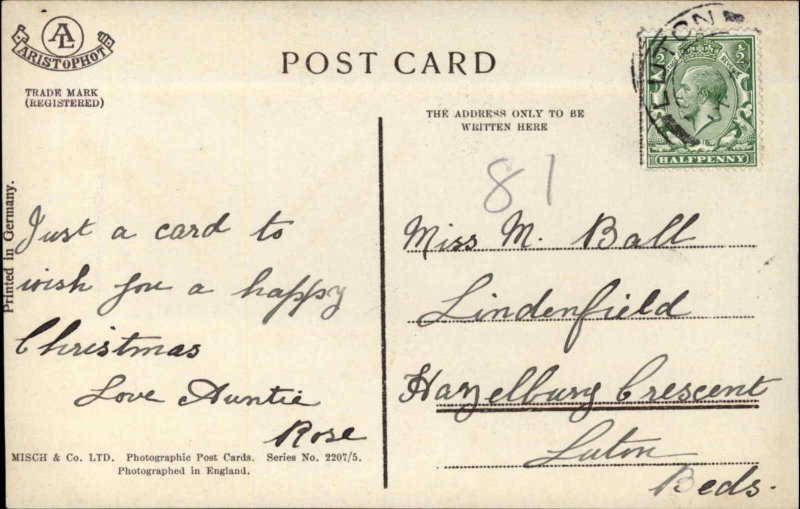 AL
ARISTOPHOT
TRADE MARK
(REGISTERED)
POST CARD
THE ADDRESS ONLY TO BE
WRITTEN HERE
LUTON
½ ½
HALFPENNY
81
Printed in Germany.
Just a card to
wish you a happy
Christmas
Love Auntie
Rose
Miss M. Ball
Lindenfield
Hazelbury Crescent
Luton
Beds.
MISCH & Co. LTD. Photographic Post Cards. Series No. 2207/5.
Photographed in England.